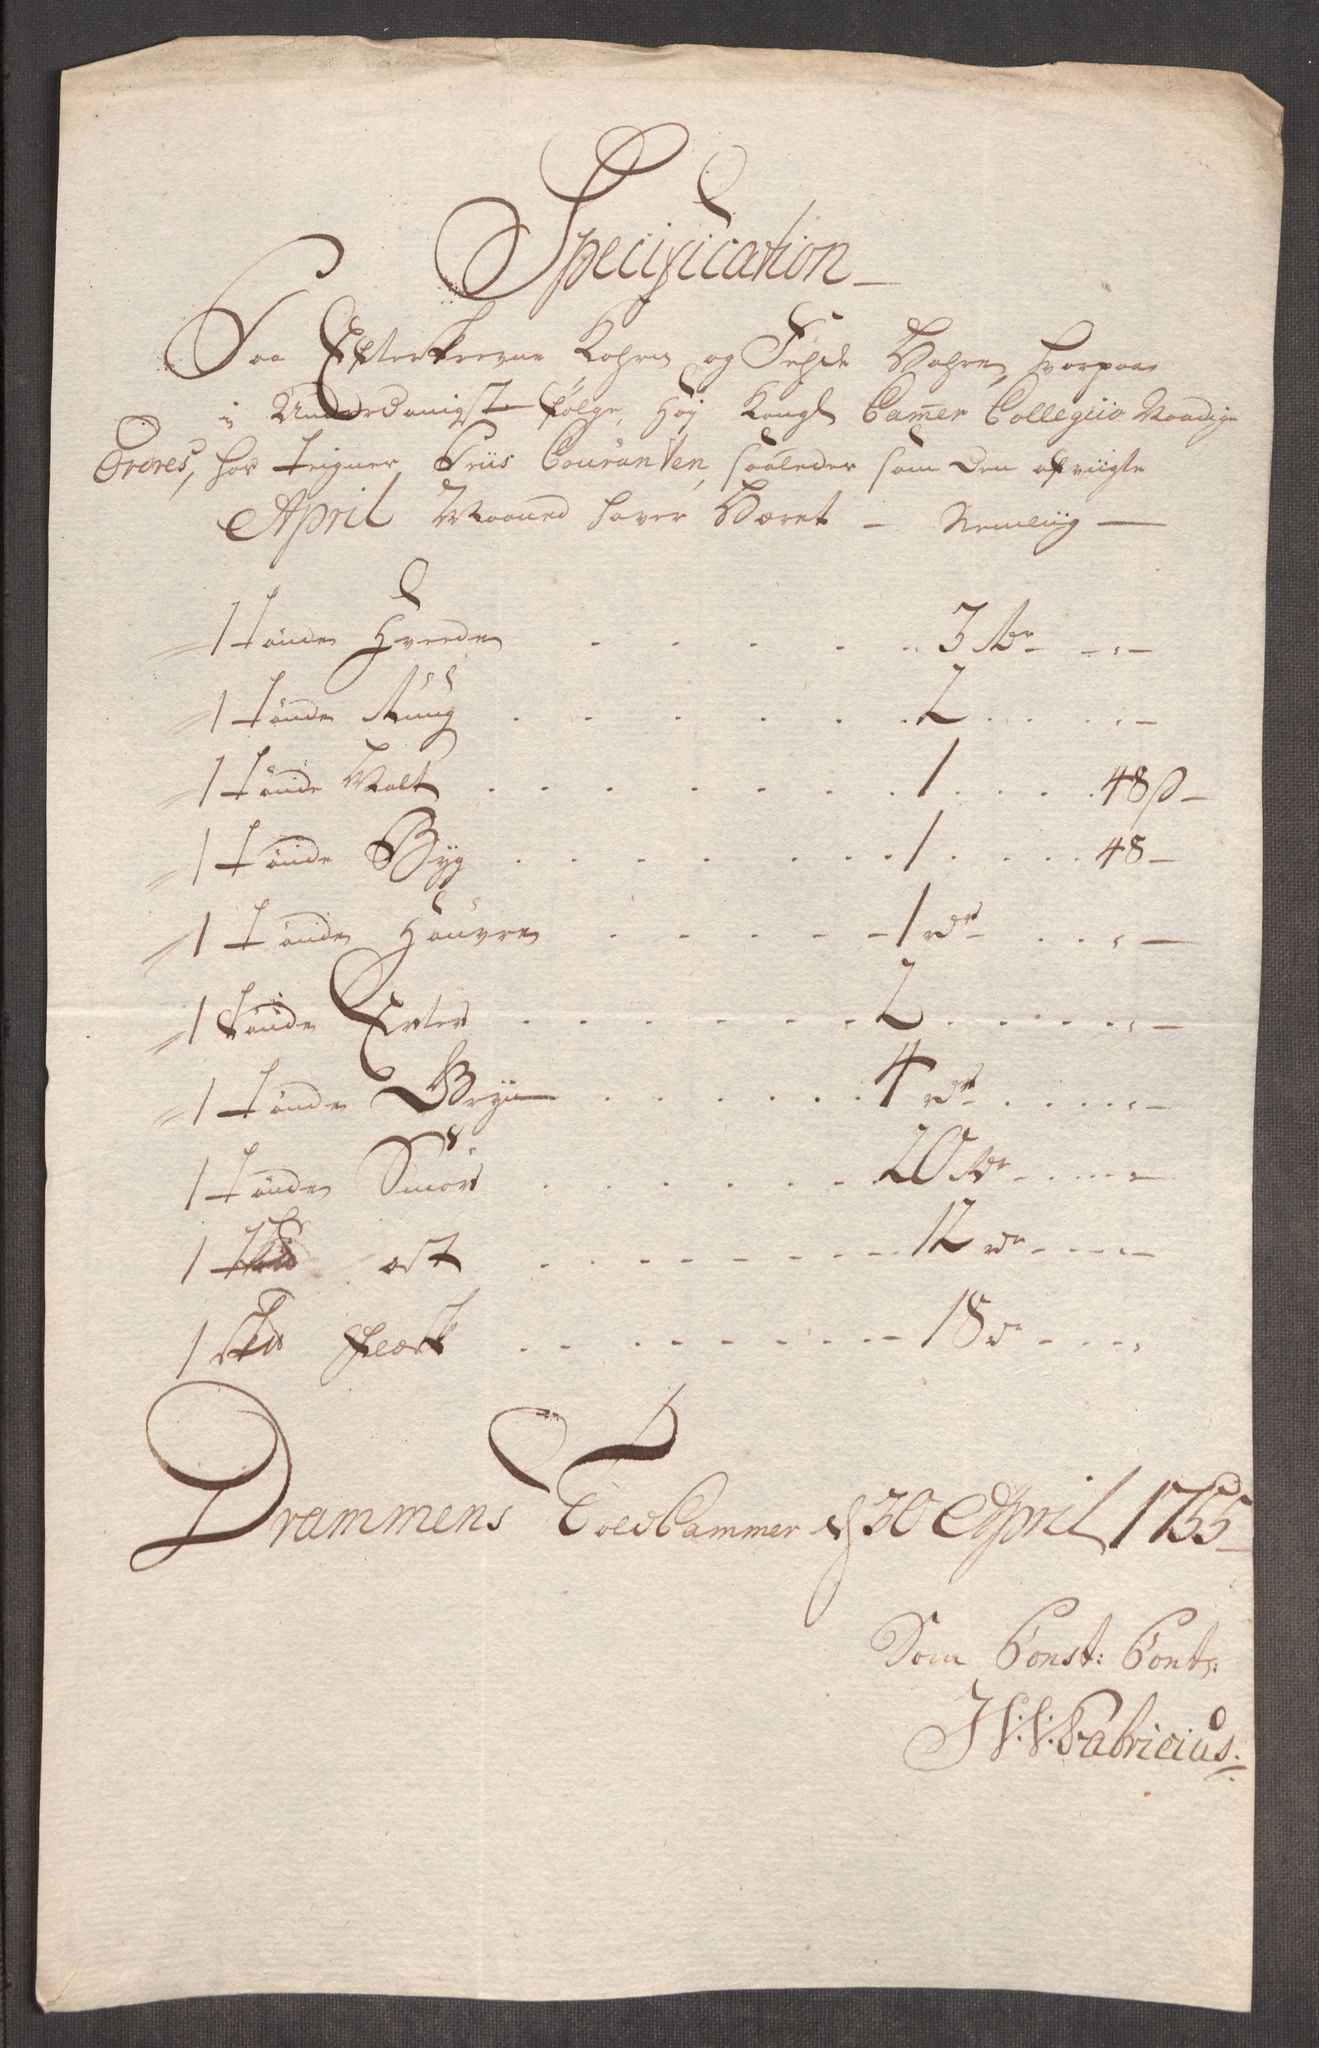 Specification
Paa Efterskrevne Kohrn og Fehde Vahre, hvorpaa
i Underdanigst følge, Høy Kongl Camer Collegiio Naadige
Ordres, hos teigner Priis Couranten, saaledes som den afviigte
April Maaned haver Været - Nemliig
1 tønde Hvede . . . . . 3 Rdr - „ -
1 tønde Ruug . . . . . . 2 . . . „ -
1 tønde Malt . . . . . . . 1 . . . . 48 s -
1 tønde Byg . . . . . . . 1 . . . . 48 -
1 tønde Hauvre . . . . - 1 rdr . . . „ -
1 tønde Erter . . . . . . 2 . . . . . „ -
1 tønde Gryn . . . . . . 4 rdr . . . . „ -
1 tønde Smør . . . . . . 20 Rdr - - - -
1 ost . . . . . . 12 rdr - - - -
1 Skd Flæsk . . . . . . 18 dr - - - „
Drammens Toldcammer d 30 April 1755
Som Const: Cont:
Fabricius